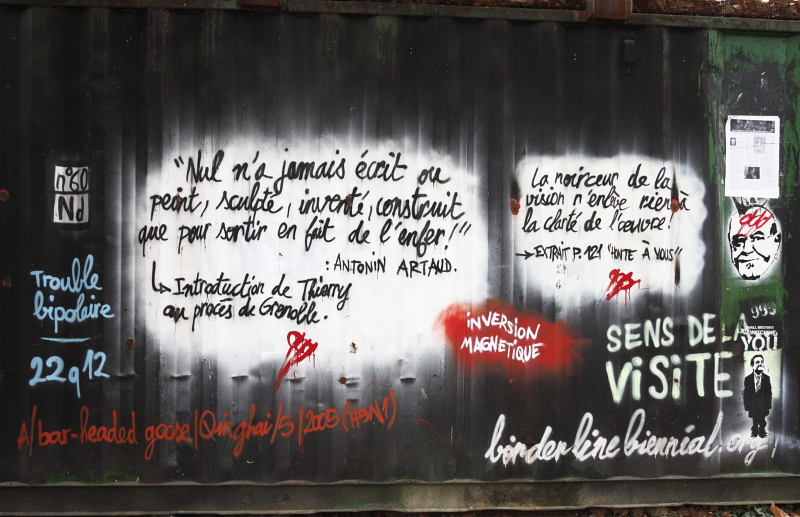 n°60
Nd
"Nul n'a jamais écrit ou
peint, sculpté, inventé, construit
que pour sortir en fait de l'enfer!"
: ANTONIN ARTAUD.
Introduction de Thierry
au procès de Grenoble.
La noirceur de la
vision n'enlève rien à
la clarté de l'oeuvre!
EXTRAIT P.121 "HONTE À VOUS"
TROUBLE
bipolaire
22q12
INVERSION
MAGNETIQUE
SENS DE LA
ViSiTE
999
YOU
A/bar-headed goose/Qinghai/5/2005(H5N1)
borderlinebiennial.org